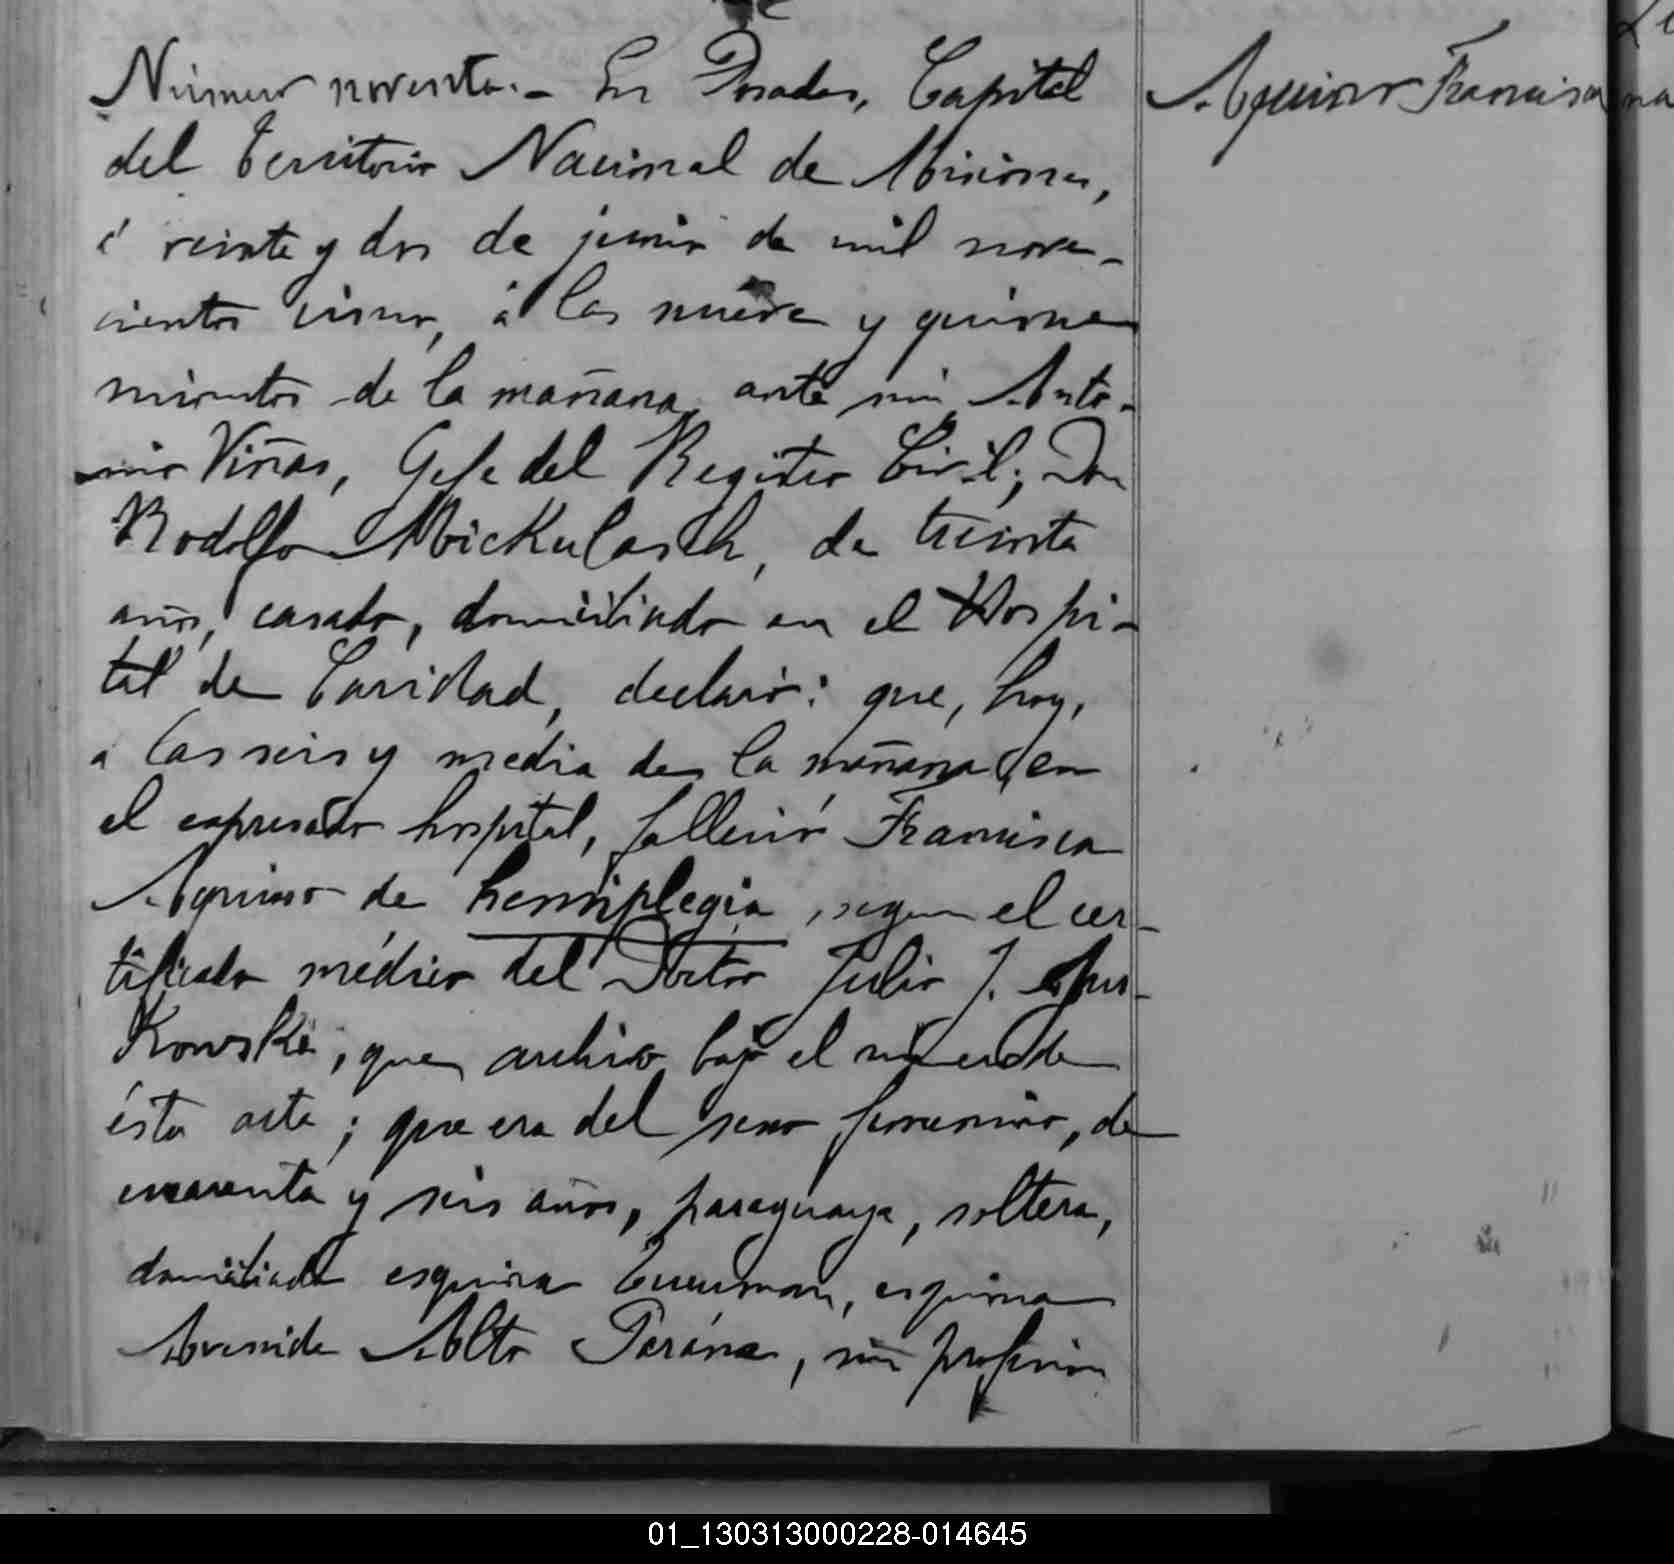 Número noventa.- En Posadas, Capital
Aquino Francisca
del Territorio Nacional de Misiones,
á veinte y dos de junio de mil nove-
cientos cinco, á las nueve y quince
minutos de la mañana, ante mi Anto-
nio Viñas, Gefe del Registro Civil; Don
Rodolfo Mickulasch, de treinta
años, casado, domiciliado en el Hospi-
tal de Caridad, declaró: que, hoy,
a las seis y media de la mañana, en
el expresado hospital, falleció Francisca
Aquino de hemiplegia, segun el cer-
tificado médico del Doctor Julio J.
que archivo bajo el número de
ésta acta; que era del sexo femenino, de
cuarenta y seis años, paraguaya, soltera,
domiciliada esquina Tucuman, esquina
Avenida Alto Paraná, sin profesion
01_130313000228-014645